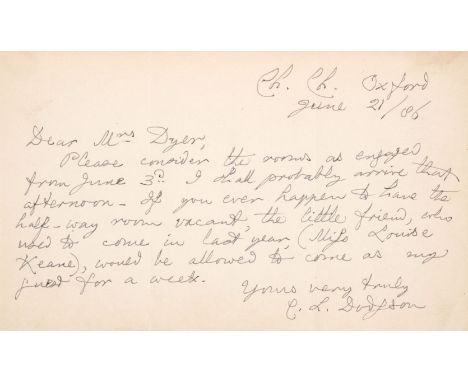 Ch. Ch. Oxford
June 21/86
Dear Mrs Dyer,
Please consider the rooms as engaged
from June 3rd. I shall probably arrive that
afternoon - If you ever happen to have the
half-way room vacant the little friend, who
used to come in last year, (Miss Louise
Keane), would be allowed to come as my
guest for a week.
Yours very truly
C. L. Dodgson